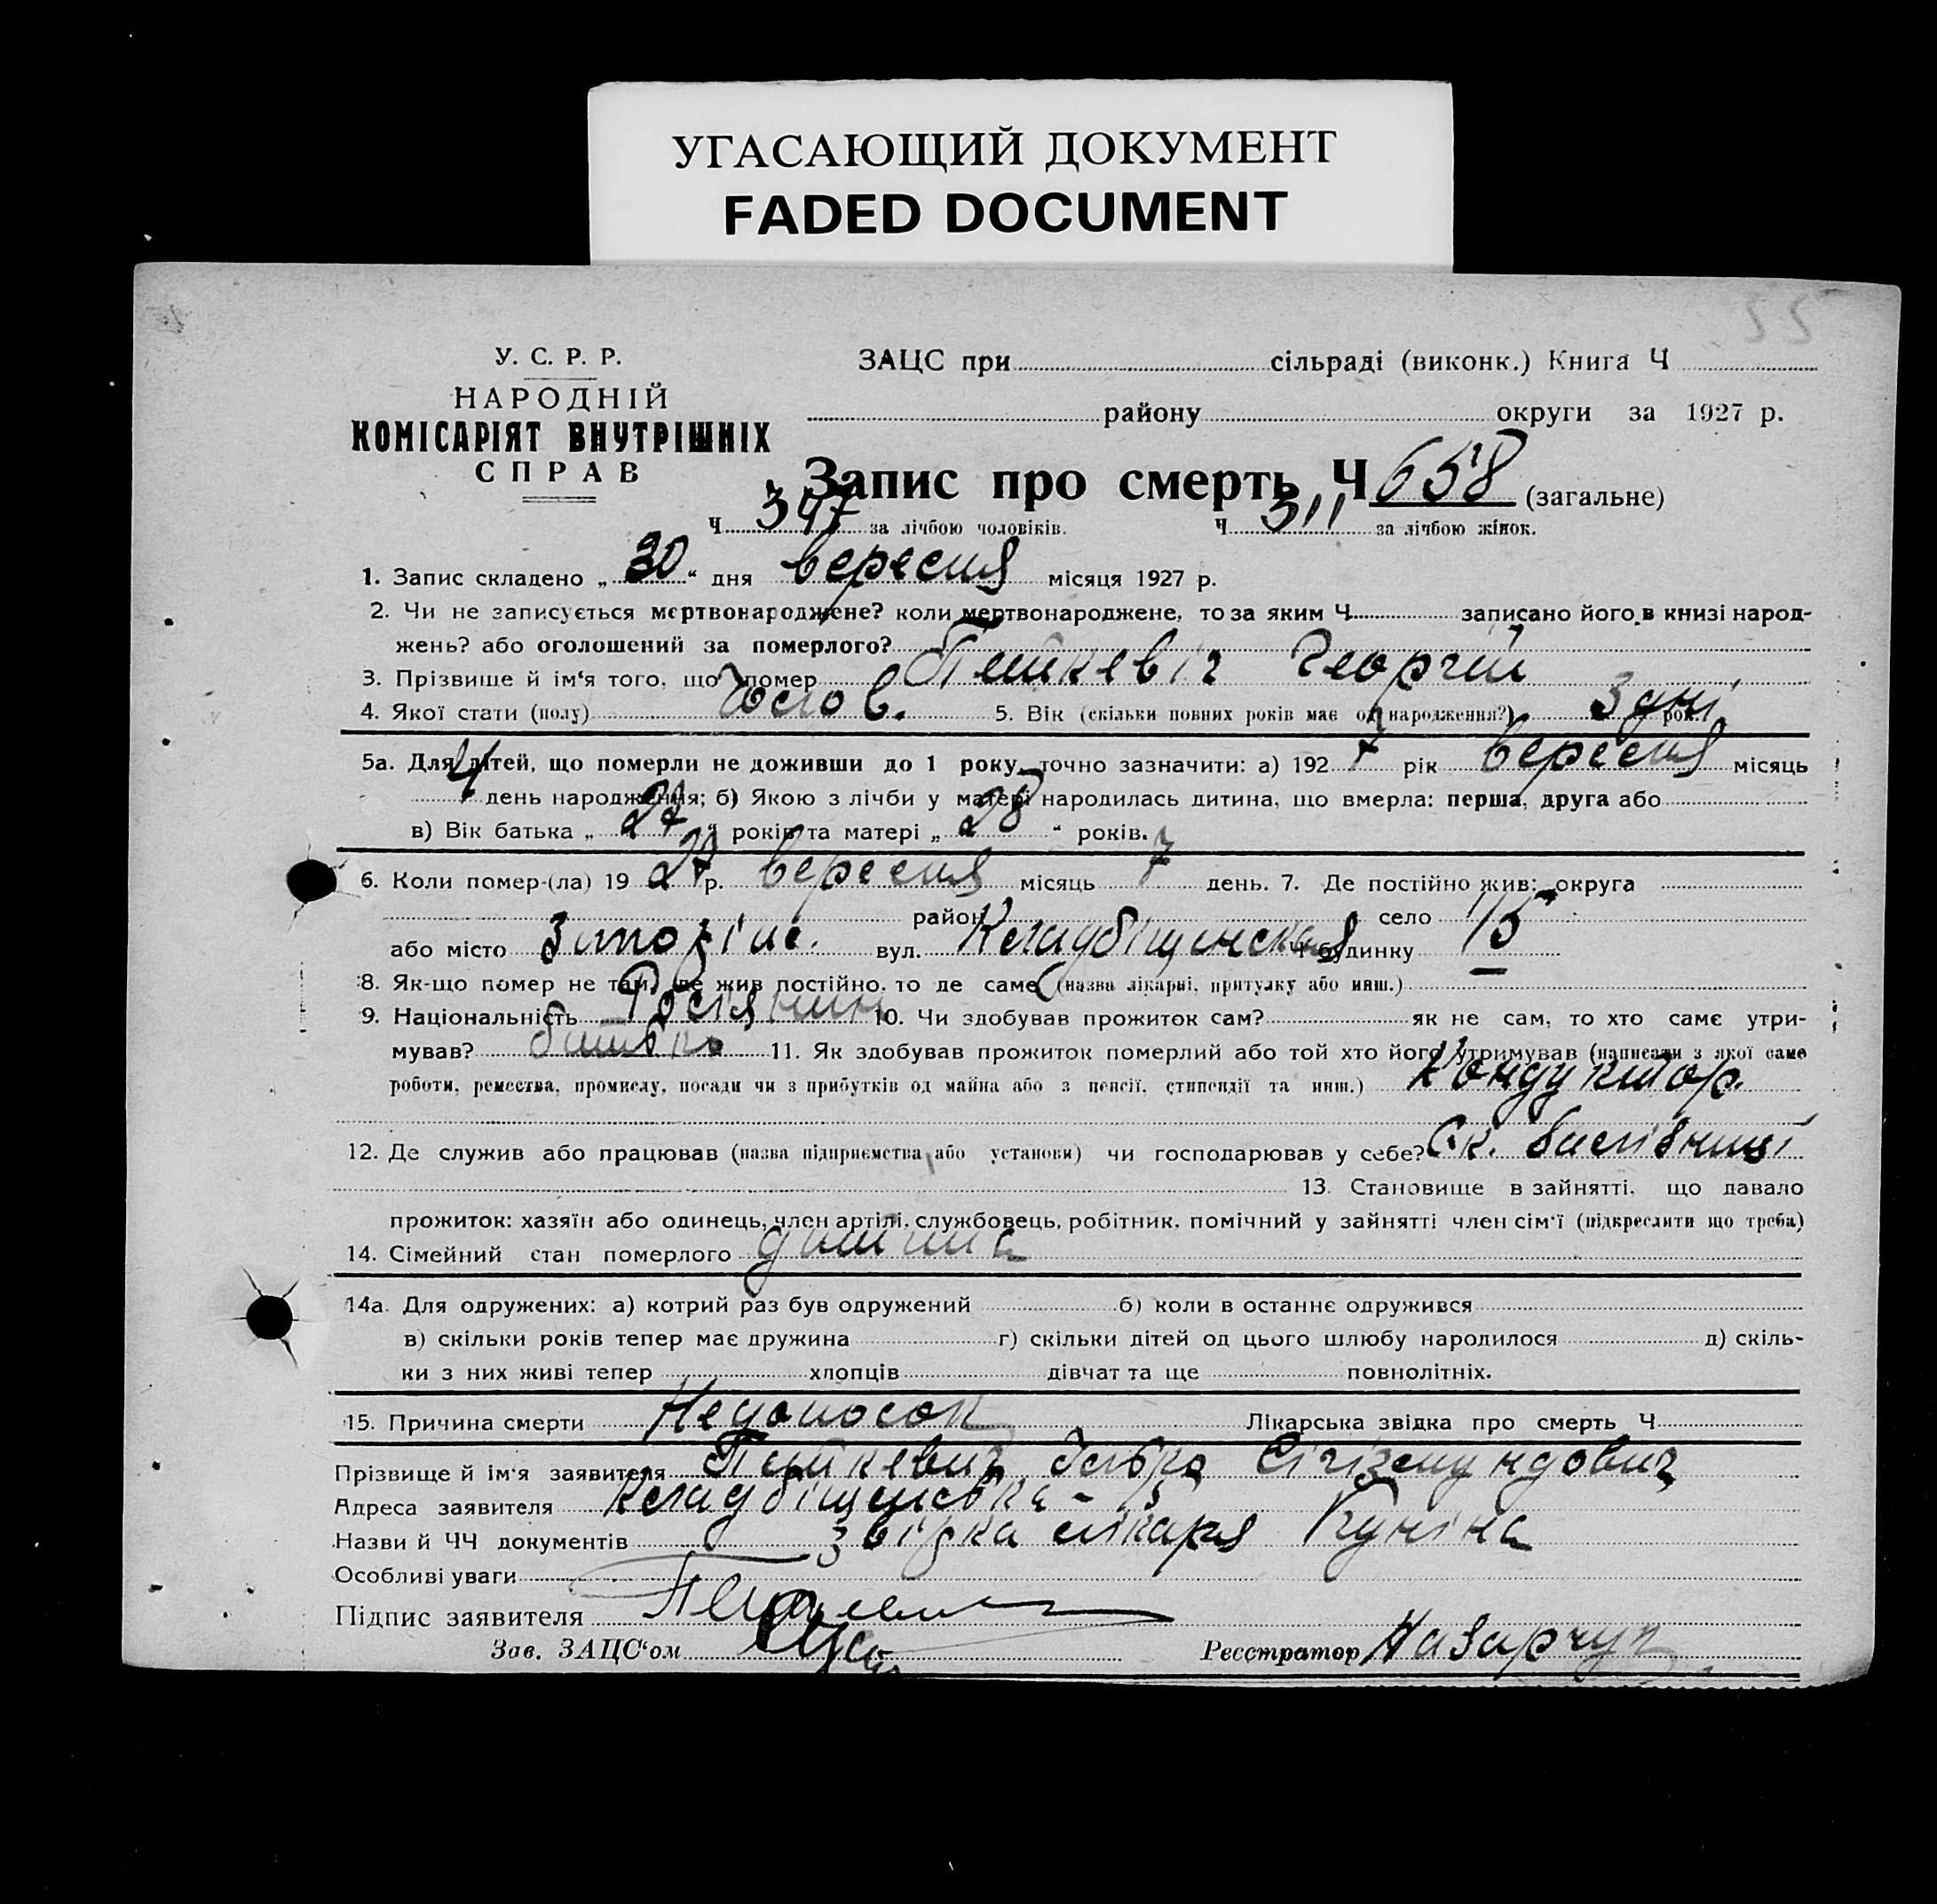 УГАСАЮЩИЙ ДОКУМЕНТ
FADED DOCUMENT
У. С. Р. Р.
НАРОДНІЙ
КОМІСАРІЯТ ВНУТРІШНІХ
СПРАВ
ЗАЦС при сільраді (виконк.) Книга Ч
району округи за 1927 р.
Запис про смерть Ч 658 (загальне)
Ч 347 за лічбою чоловіків. Ч 311 за лічбою жінок.
1. Запис складено „ 30 “ дня вересня місяця 1927 р.
2. Чи не записується мертвонароджене? коли мертвонароджене, то за яким Ч. записано його в книзі народ-
жень? або оголошений за померлого?
3. Прізвище й ім'я того, що помер Георгій
4. Якої стати (полу) 5. Вік (скільки повних років має од народження?) 3 дні рок.
5а. Для дітей, що померли не доживши до 1 року, точно зазначити: а) 192 7 рік вересня місяць
4 день народження; б) Якою з лічби у матері народилась дитина, що вмерла: перша, друга або
в) Вік батька „ 27 “ років та матері „ 28 “ років.
6. Коли помер-(ла) 19 27 р. вересня місяць 7 день. 7. Де постійно жив: округа
район село
або місто вул. Кладбіщенская Ч будинку 15
8. Як-що помер не там, де жив постійно, то де саме (назва лікарні, притулку або инш.)
9. Національність Росіянин 10. Чи здобував прожиток сам? як не сам, то хто саме утри-
мував? батько 11. Як здобував прожиток померлий або той хто його утримував (написати з якої саме
роботи, ремества, промислу, посади чи з прибутків од майна або з пенсії, стипендії та инш.) Кондуктор.
12. Де служив або працював (назва підприємства або установи) чи господарював у себе?
13. Становище в зайнятті, що давало
прожиток: хазяїн або одинець, член артілі, службовець, робітник, помічний у зайнятті член сім'ї (підкреслити що треба)
14. Сімейний стан померлого дитина
14а. Для одружених: а) котрий раз був одружений б) коли в останнє одружився
в) скільки років тепер має дружина г) скільки дітей од цього шлюбу народилося д) скіль-
ки з них живі тепер хлопців дівчат та ще повнолітніх.
15. Причина смерти Недоносок Лікарська звідка про смерть Ч
Прізвище й ім'я заявителя Сігізмундович
Адреса заявителя - 15
Назви й ЧЧ документів звідка лікаря
Особливі уваги
Підпис заявителя
Зав. ЗАЦС'ом Реєстратор Назарчук